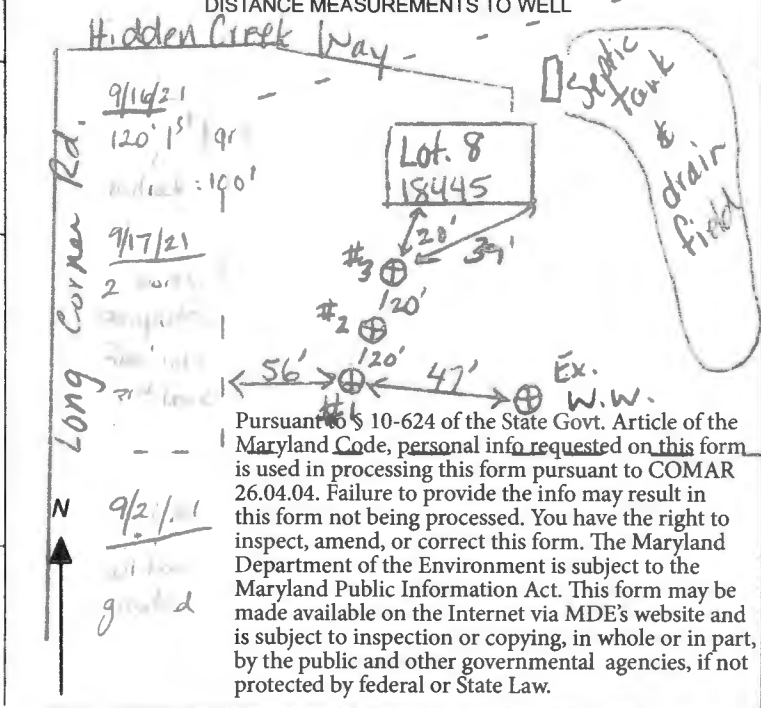 DISTANCE MEASUREMENTS TO WELL
Hidden Creek Way
Long Corner Rd.
9/16/21
120' 1st
: 190'
9/17/21
2
Lot. 8
18445
Septic
tank
&
drain
field
20'
39'
#3
120'
#2
120'
56'
47'
#1
Ex.
W.W.
N
9/2
Pursuant to § 10-624 of the State Govt. Article of the
Maryland Code, personal info requested on this form
is used in processing this form pursuant to COMAR
26.04.04. Failure to provide the info may result in
this form not being processed. You have the right to
inspect, amend, or correct this form. The Maryland
Department of the Environment is subject to the
Maryland Public Information Act. This form may be
made available on the Internet via MDE's website and
is subject to inspection or copying, in whole or in part,
by the public and other governmental agencies, if not
protected by federal or State Law.